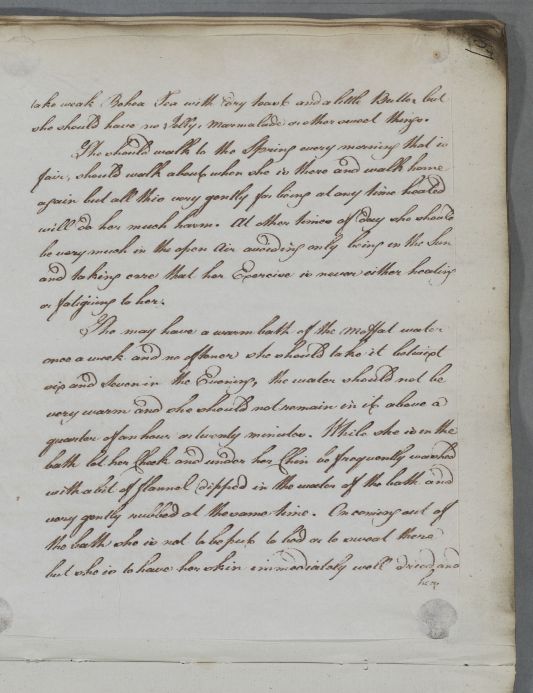 take weak Bohea Tea with dry toast and a little Butter but
she should have no Jelly, Marmalade or other sweet things.
She should walk to the Spring every morning that is
fair, should walk about when she is there and walk home
again but all this very gently for being at any time heated
will do her much harm. At other times of day she should
be very much in the open Air avoiding only being in the Sun
and taking care that her Exercise is never either heating
or fatiguing to her.
She may have a warm bath of the Moffat water
once a week and no oftener she should take it betwixt
six and Seven in the Evening, the water should not be
very warm and she should not remain in it above a
quarter of an hour or twenty minutes. While she is in the
bath let her Cheek and under her Chin be frequently washed
with a bit of flannel dipped in the water of the bath and
very gently rubbed at the same time. On coming out of
the bath she is not to be put to bed or to sweat there
but she is to have her skin immediately well dried and
her